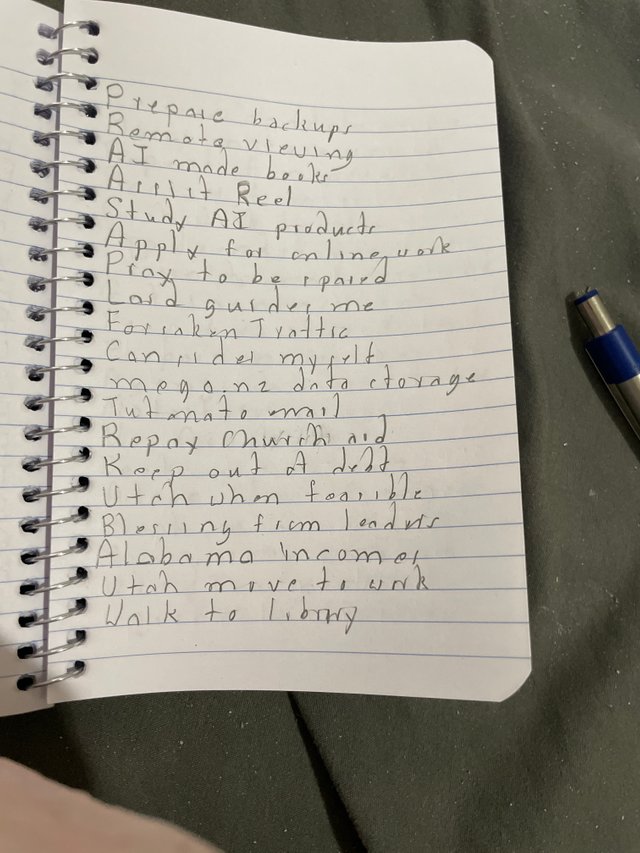 Prepare backups
Remote viewing
AI made books
Assist Reel
Study AI products
Apply for online work
Pray to be spared
Lord guides me
Forsaken Traffic
Consider myself
mega.nz data storage
Tutanota email
Repay Church aid
Keep out of debt
Utah when feasible
Blessing from leaders
Alabama incomes
Utah move to work
Walk to library